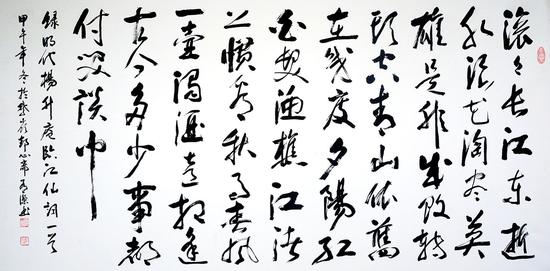 滚々長江东逝
水浪花淘尽英
雄是非成败转
头空青山依舊
在几度夕陽红
白发渔樵江渚
上惯看秋月春风
一壶浊酒喜相逢
古今多少事都
付笑谈中
録明代楊升庵臨江仙词一首
甲午年冬於